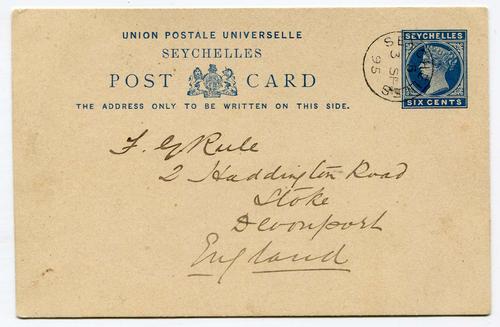 UNION POSTALE UNIVERSELLE
SEYCHELLES
POST CARD
THE ADDRESS ONLY TO BE WRITTEN ON THIS SIDE.
SEYCHELLES
SIX CENTS
3 SP
95
F. G Rule
2 Haddington Road
Stoke
Devonport
England